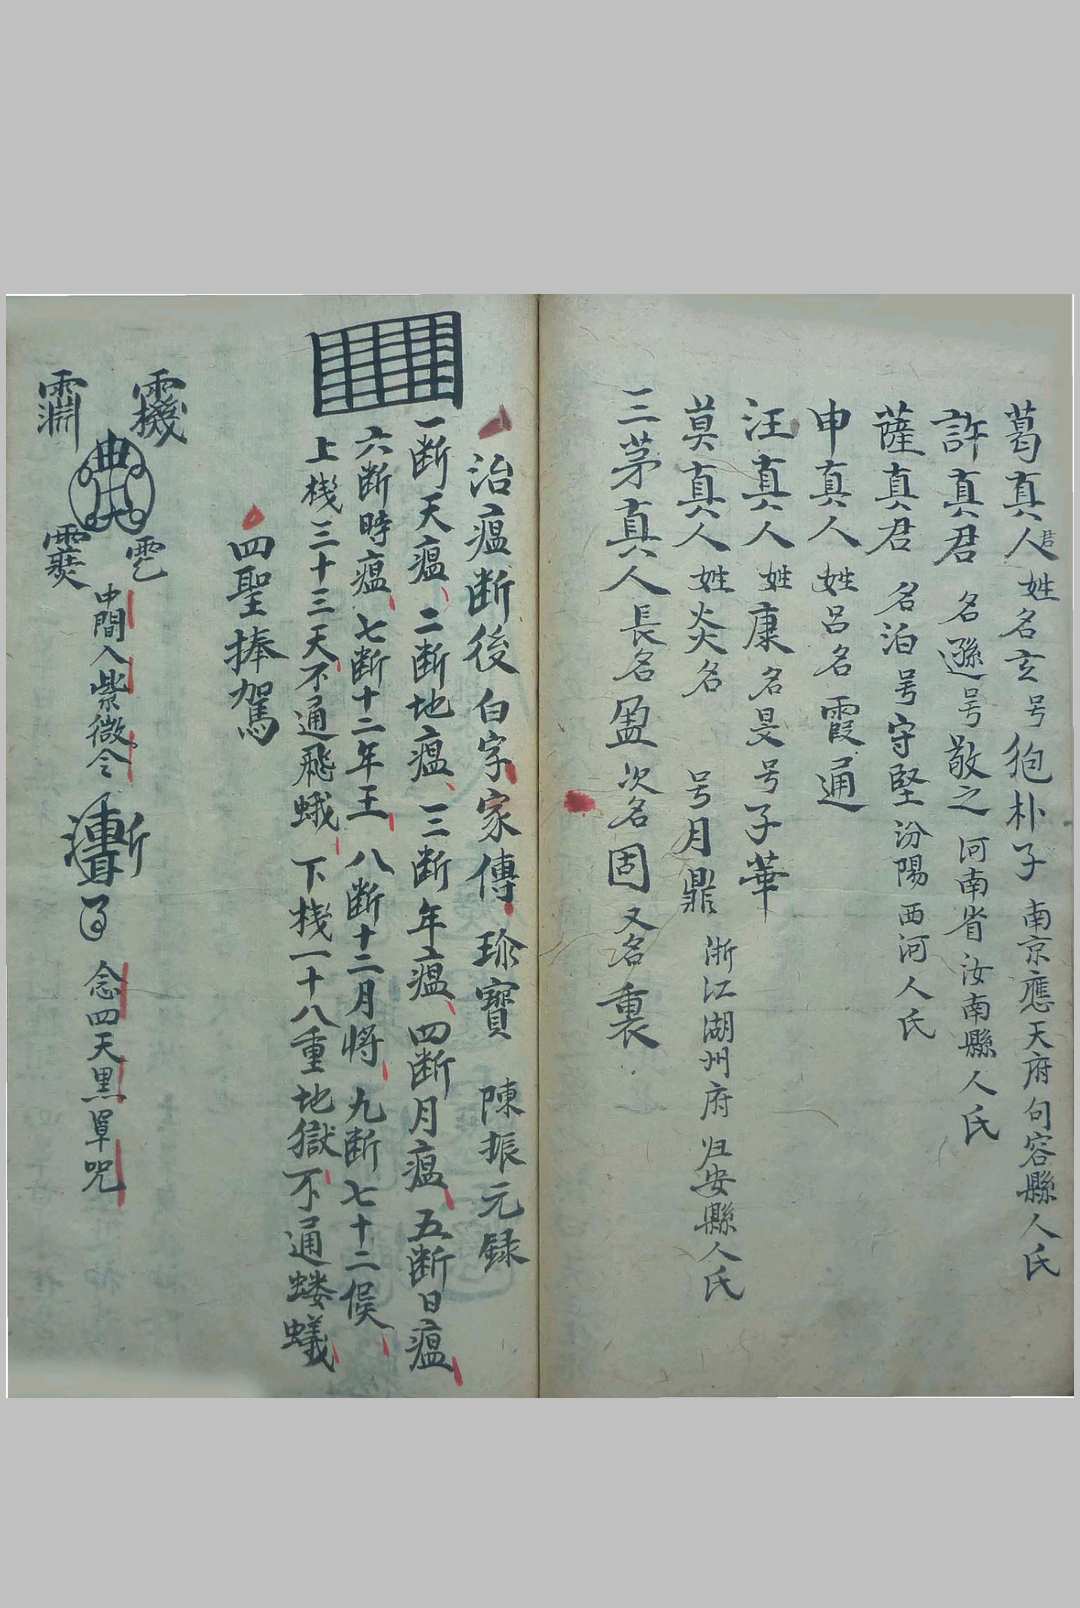 葛真人君姓名玄号狍朴子南京應天府句容縣人氏
許真君名遜号敬之河南省汝南縣人氏
薩真君名泊号守堅汾陽西河人氏
申真人姓呂名霞通
汪真人姓康名旻号子華
莫真人姓炎名号月鼎浙江湖州府归安縣人氏
三茅真人長名盈次名固又名裏
治瘟断後白字家傳珍寶陳振元録
一断天瘟二断地瘟三断年瘟四断月瘟五断日瘟
六断時瘟七断十二年王八断十二月将九断七十二候
上栈三十三天不通飛蛾下栈一十八重地獄不通蝼蟻
四聖捧駕
中間入紫微令
念四天黑單咒